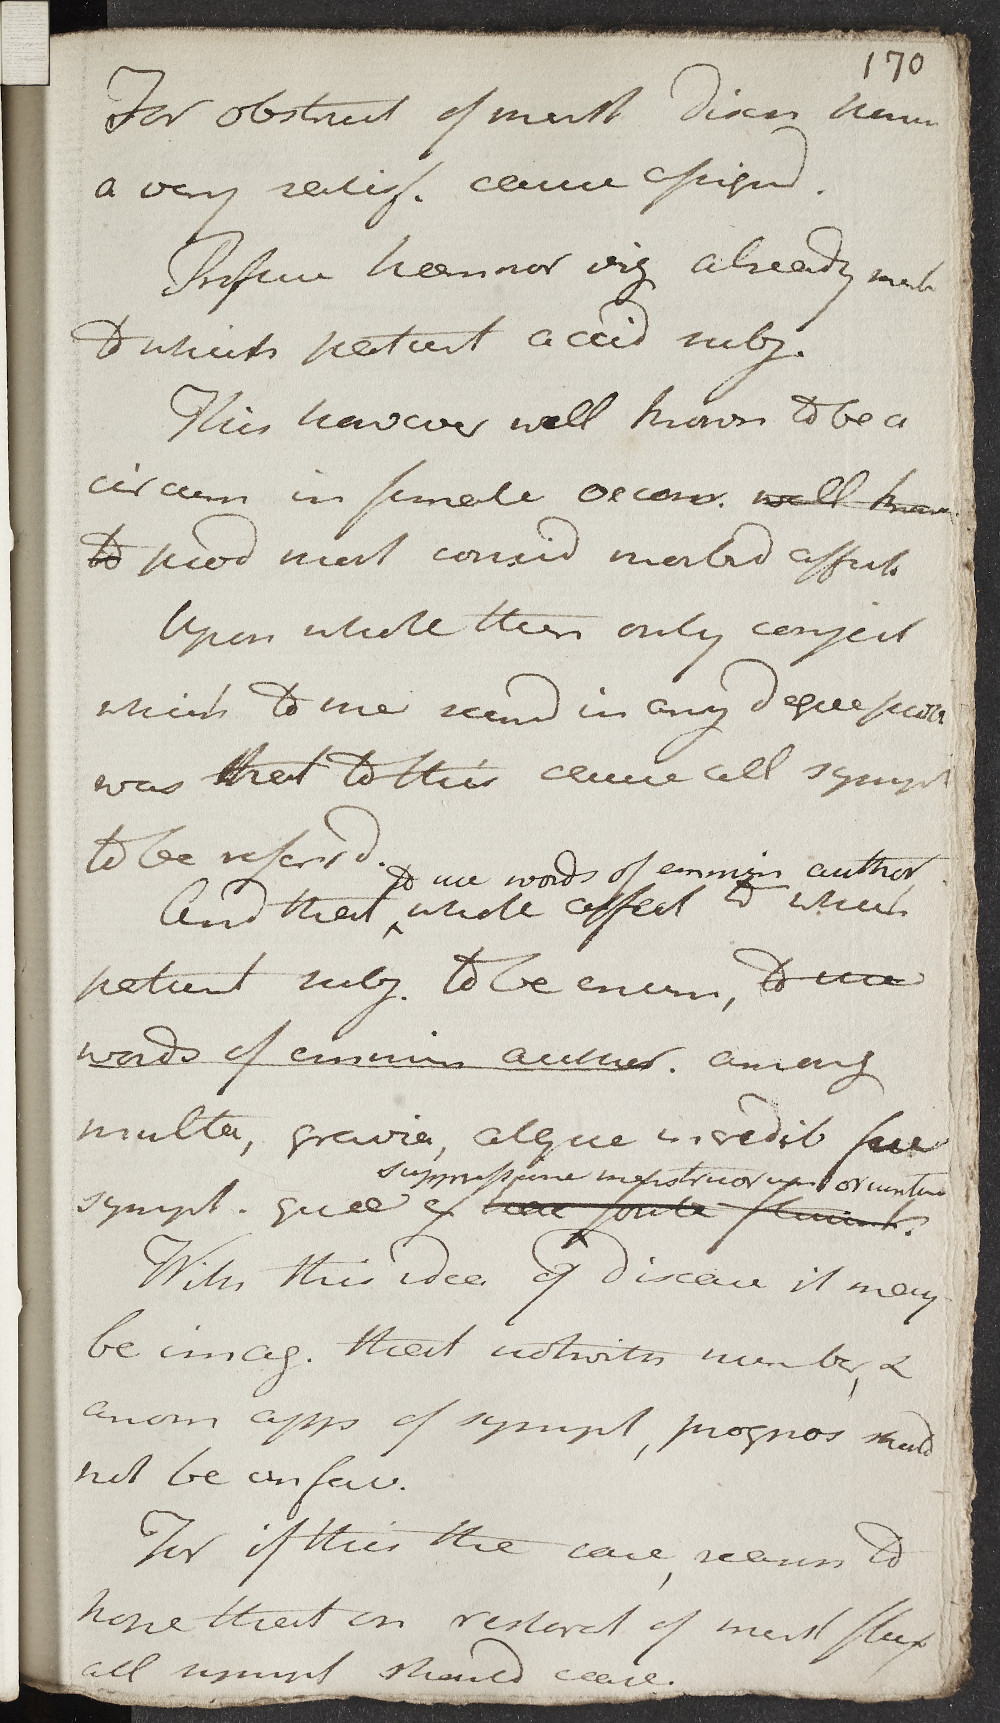 170
For obstruct of menst discas
a very satisf. cause assignd.
Profuse haemor vig already ment
to which patient accid subj.
This however well known to be a
circum in female oecon. well know
to prod most consid morbid affect
Upon whole then only conject
which to me seemd in any degree prob
was that to this cause all sympt
to be referrd.
to use words of eminen author
And that whole affect to which
patient subj. to be enum, to use
words of eminen author. among
multa, gravia, atque incredib fere
suppressione menstruorum oriuntur
sympt. quae ex hoc fonte
With this idea of disease it may
be imag. that notwith number, &
anom apps of sympt, prognos should
not be unfav.
For if this the case, reason to
hope that on restorat of menst flux
all sympt should cease.